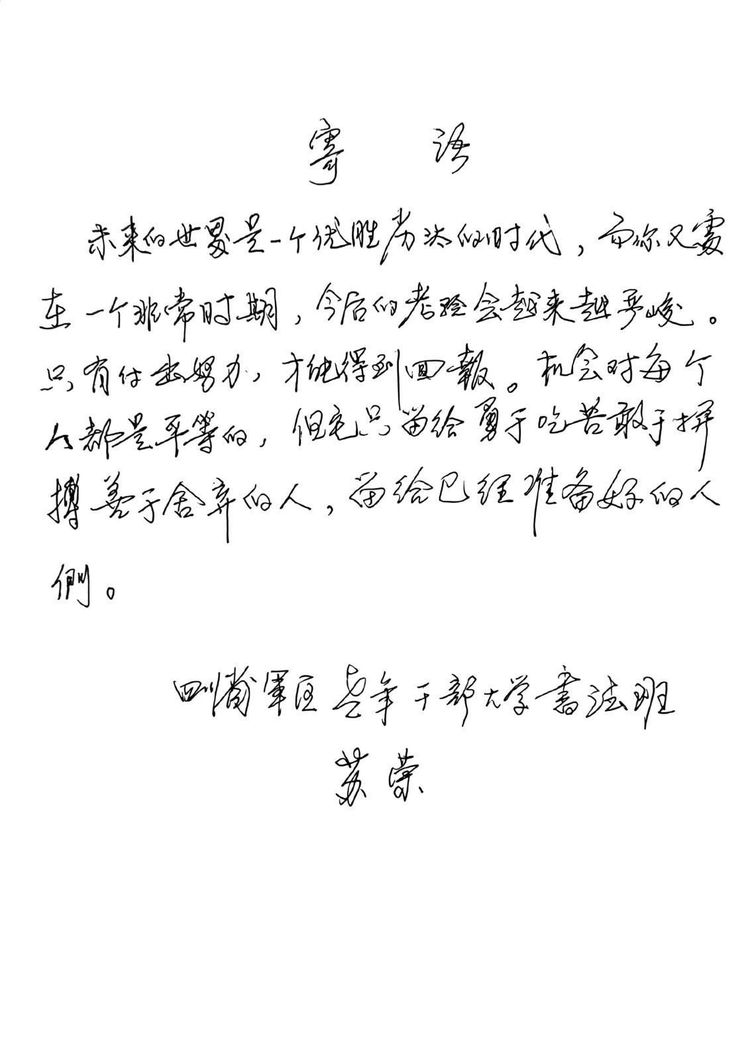 寄 语
未来的世界是一个优胜劣汰的时代，而你又處
在一个非常时期，今后的考验会越来越严峻。
只有付出努力，才能得到回報。机会对每个
人都是平等的，但它只留给勇于吃苦敢于拼
搏善于舍弃的人，留给已经准备好的人
們。
四川省軍区老年干部大学書法班
苏荣